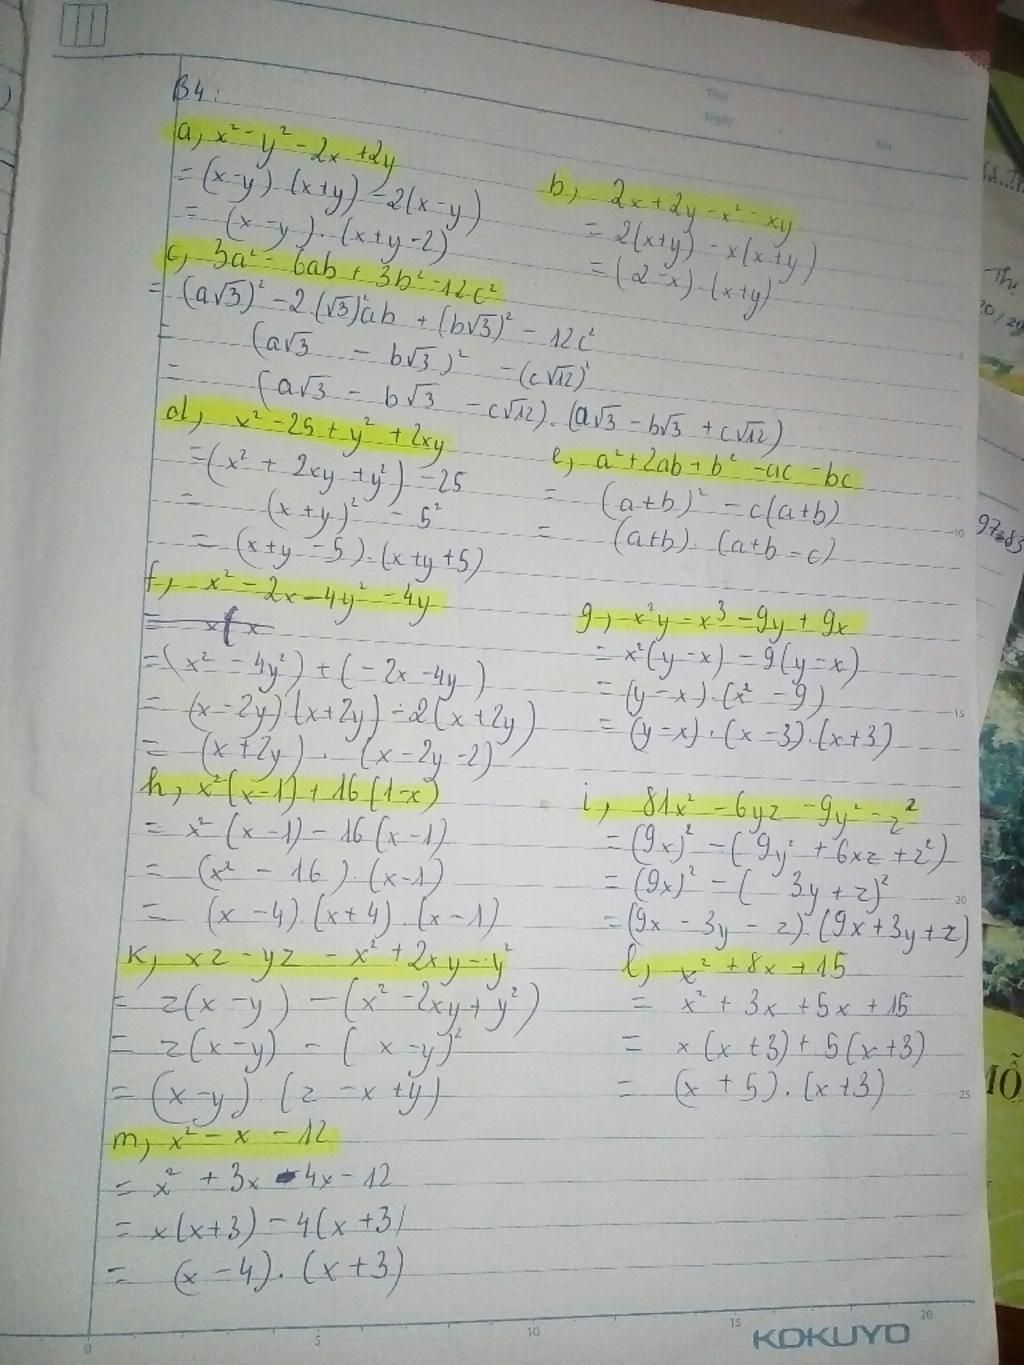 B4:
a, x² - y² - 2x + 2y
= (x-y).(x+y) - 2(x-y)
= (x-y).(x+y-2)
b, 2x + 2y - x² - xy
= 2(x+y) - x(x+y)
= (2-x).(x+y)
c, 3a² - 6ab + 3b² - 12c²
= (a√3)² - 2.(√3)²ab + (b√3)² - 12c²
= (a√3 - b√3)² - (c√12)²
= (a√3 - b√3 - c√12).(a√3 - b√3 + c√12)
d, x² - 25 + y² + 2xy
= (x² + 2xy + y²) - 25
= (x+y)² - 5²
= (x+y-5).(x+y+5)
e, a² + 2ab + b² - ac - bc
= (a+b)² - c(a+b)
= (a+b).(a+b-c)
f, x² - 2x - 4y² - 4y
= (x² - 4y²) + (-2x - 4y)
= (x-2y).(x+2y) - 2(x+2y)
= (x+2y).(x-2y-2)
g, x²y - x³ - 9y + 9x
= x²(y-x) - 9(y-x)
= (y-x).(x²-9)
= (y-x).(x-3).(x+3)
h, x²(x-1) + 16(1-x)
= x²(x-1) - 16(x-1)
= (x² - 16).(x-1)
= (x-4).(x+4).(x-1)
i, 81x² - 6yz - 9y² - z²
= (9x)² - (9y² + 6xz + z²)
= (9x)² - (3y + z)²
= (9x - 3y - z).(9x + 3y + z)
k, xz - yz - x² + 2xy - y²
= z(x-y) - (x² - 2xy + y²)
= z(x-y) - (x-y)²
= (x-y).(z-x+y)
l, x² + 8x + 15
= x² + 3x + 5x + 15
= x(x+3) + 5(x+3)
= (x+5).(x+3)
m, x² - x - 12
= x² + 3x - 4x - 12
= x(x+3) - 4(x+3)
= (x-4).(x+3)
Thứ
Ngày
No.
5
10
15
20
25
0
5
10
15
20
KOKUYO